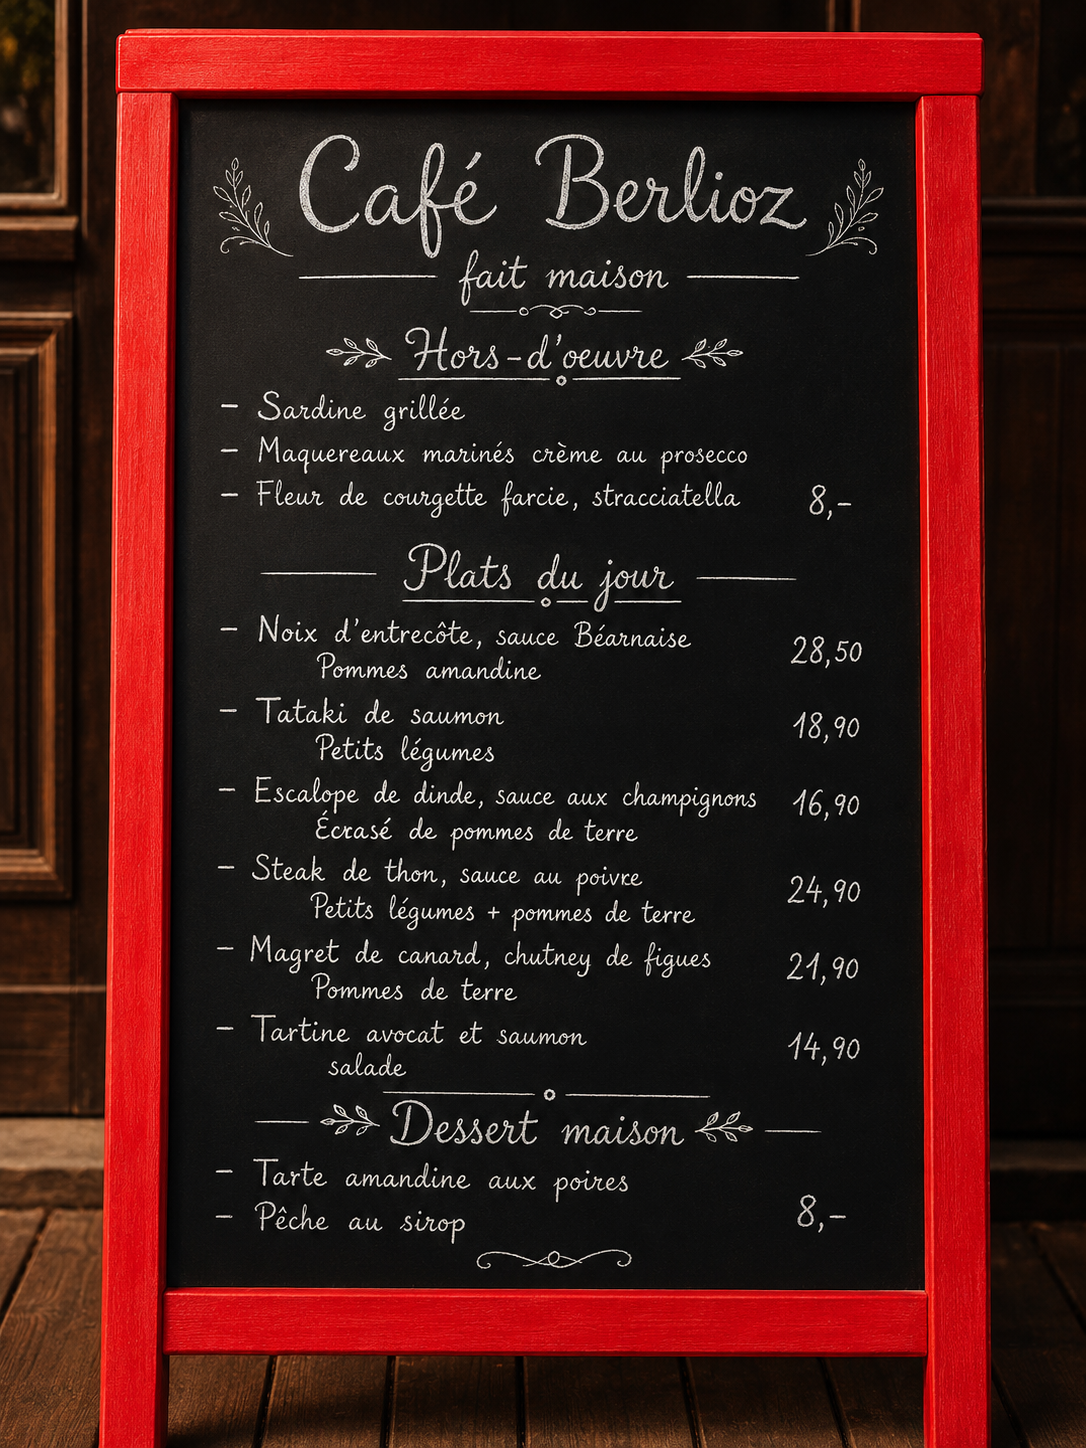 Café Berlioz
fait maison
Hors-d'oeuvre
– Sardine grillée
– Maquereaux marinés crème au prosecco
– Fleur de courgette farcie, stracciatella 8,–
Plats du jour
– Noix d'entrecôte, sauce Béarnaise 28,50
Pommes amandine
– Tataki de saumon 18,90
Petits légumes
– Escalope de dinde, sauce aux champignons 16,90
Écrasé de pommes de terre
– Steak de thon, sauce au poivre 24,90
Petits légumes + pommes de terre
– Magret de canard, chutney de figues 21,90
Pommes de terre
– Tartine avocat et saumon 14,90
salade
Dessert maison
– Tarte amandine aux poires
– Pêche au sirop 8,–